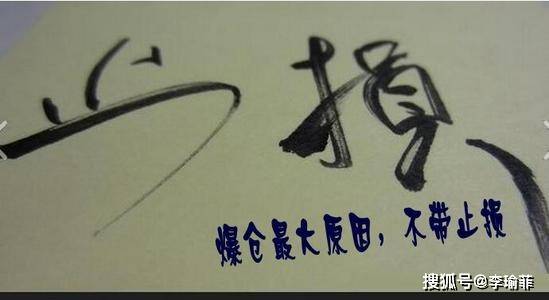 止損
爆仓最大原因，不带止损
搜狐号@李瑜菲